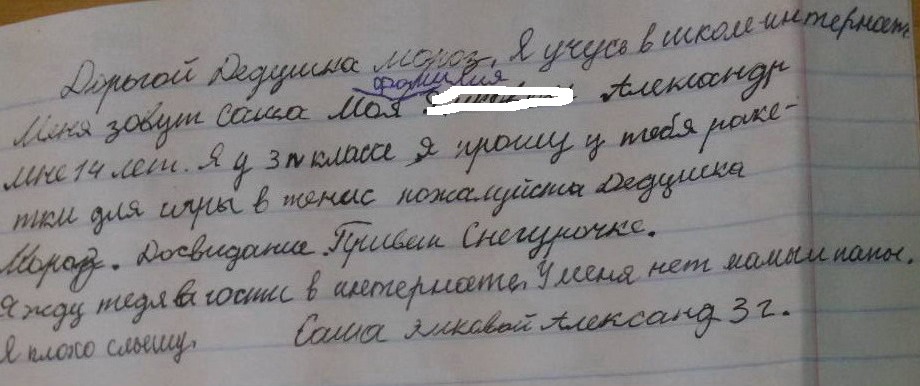 Дорогой Дедушка мороз. Я учусь в школе-интернате
Меня зовут Саша Моя фамилия Александр
мне 14 лет. Я у 3 классе я прошу у тебя раке-
тки для игры в тенис пожалуйста Дедушка
Мороз. Досвидание. Привет Снегурочке.
Я жду тедя в гости в интернате. У меня нет мамы и папы.
Я плохо слышу. Саша Александ 3 г.